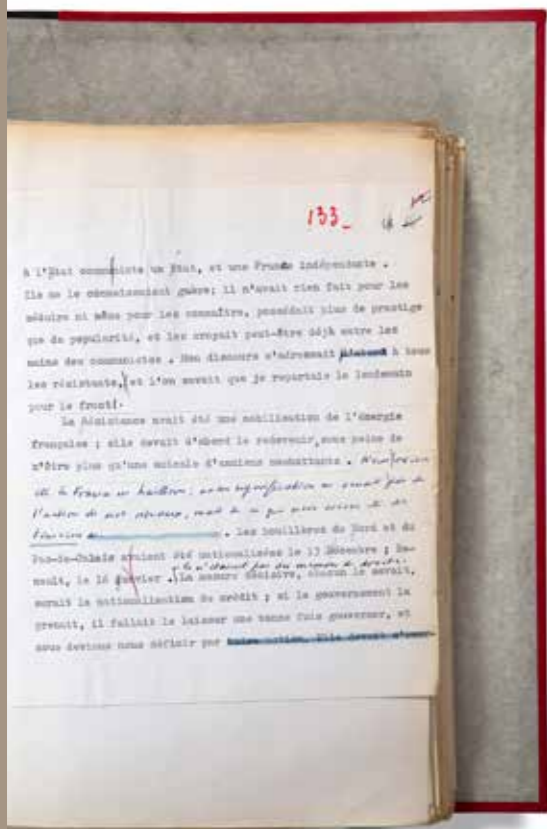 133_
à l'État communiste un État, et une France indépendante .
Ils ne le connaissaient guère; il n'avait rien fait pour les
séduire ni même pour les connaître, possédait plus de prestige
que de popularité, et les croyait peut-être déjà entre les
mains des communistes . Mon discours s'adressait à tous
les résistants, et l'on savait que je repartais le lendemain
pour le front.
La Résistance avait été une mobilisation de l'énergie
française ; elle devait d'abord le redevenir, sous peine de
n'être plus qu'une amicale d'anciens combattants . Nous avions
été la France en haillons; notre signification ne venait pas de
l'action de nos réseaux, mais de ce que nous avions été des
témoins . Les houillères du Nord et du
Pas-de-Calais avaient été nationalisées le 13 Décembre ; Re-
nault, le 16 Janvier . Ce n'étaient pas des mesures de droite. La mesure décisive, chacun le savait,
serait la nationalisation du crédit ; si le gouvernement la
prenait, il fallait le laisser une bonne fois gouverner, et
nous devions nous définir par notre action. Elle devait